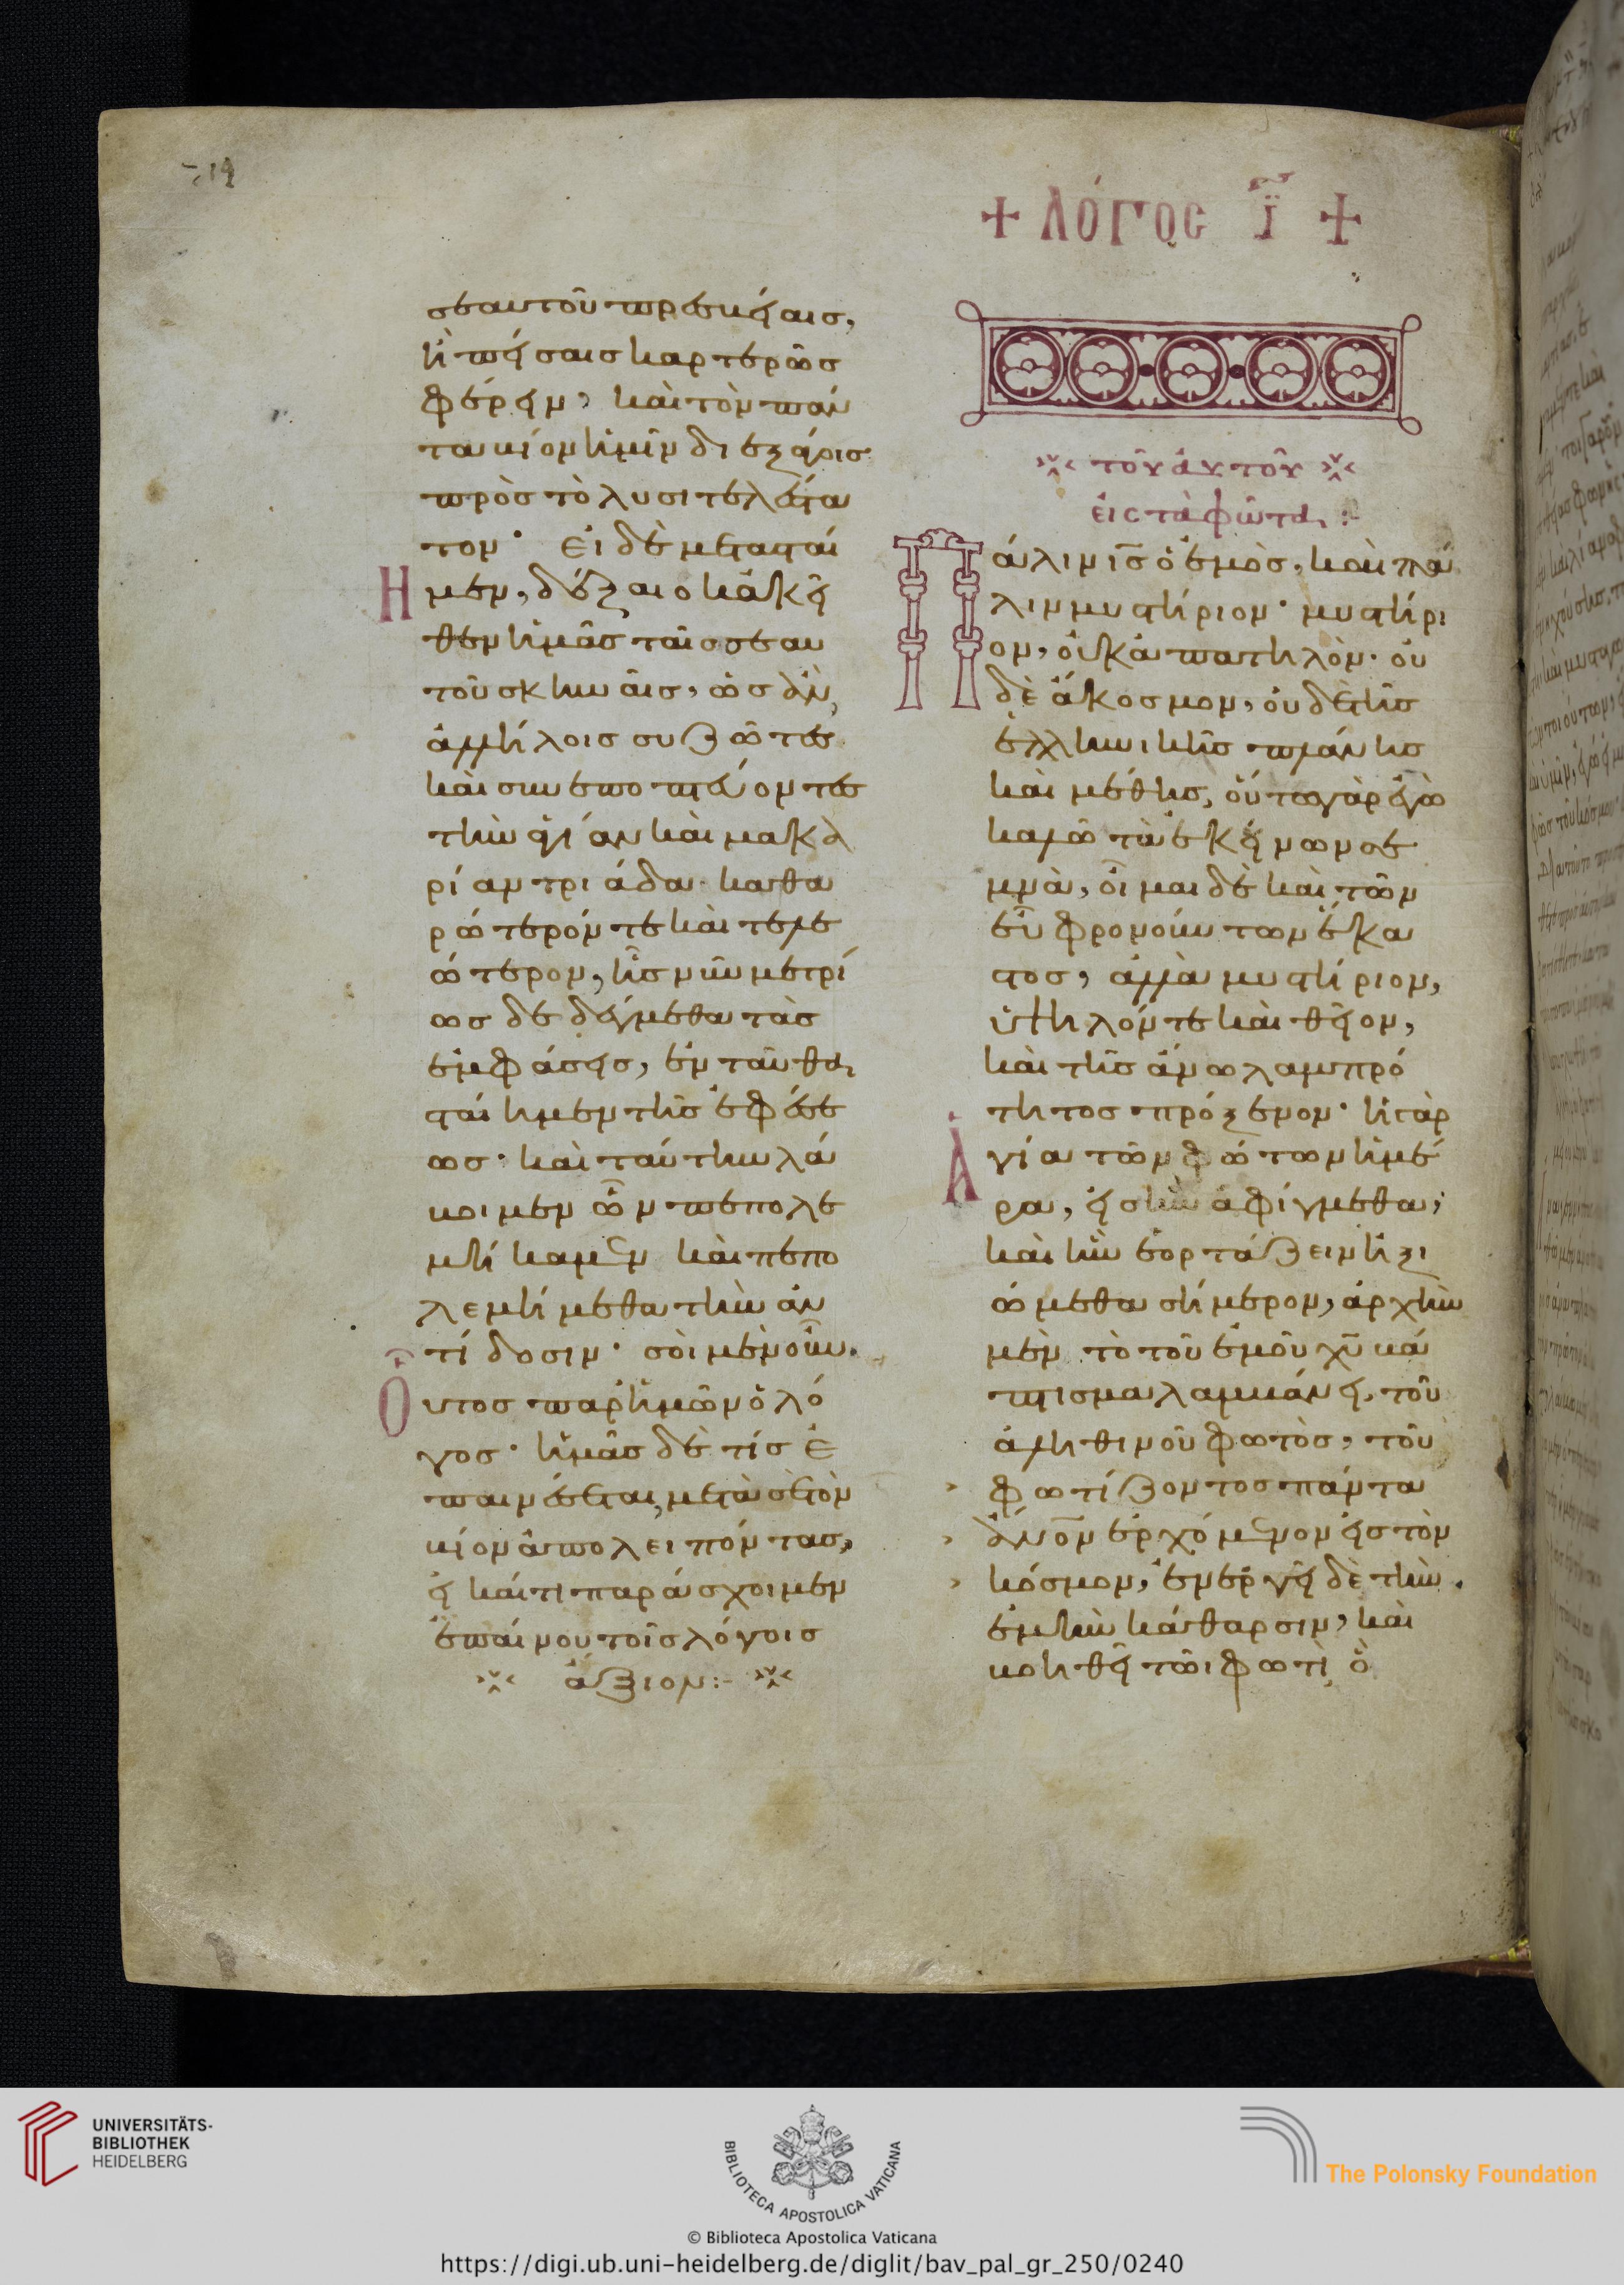 + ΛΌΓΟC Ϊ +
σεαυτοῦ πρεσβείαισ,
ἢ πείσαισ καρτερῶσ
φέρειν, καὶ τὸν πάν
τα βίον ἡμῖν διεξάγοισ
πρὸσ τὸ λυσιτελέστα
τον· εἰ δὲ μετασταί
Ημεν, δέξαιο κἀκεῖ
θεν ἡμᾶσ ταῖσ σεαυ
τοῦ σκηναῖσ, ὡσ ἂν,
ἀλλήλοισ συζῶντεσ
καὶ συνεποπτεύοντεσ
τὴν ἁγίαν καὶ μακα
ρίαν τριάδα· καθα
ρώτερόν τε καὶ τελε
ώτερον, ἧσ νῦν μετρί
ωσ δεδέγμεθα τὰσ
ἐμφάσεισ, ἐνταῦθα
σταίημεν τῆσ ἐφέσε
ωσ· καὶ ταύτην λά
βοιμεν ὧν πεπολε
μήκαμεν καὶ πεπο
λεμήμεθα τὴν ἀν
τίδοσιν· σοὶ μὲν οὖν.
Οὗτοσ παρ ἡμῶν ὁ λό
γοσ· ἡμᾶσ δὲ τίσ ἐ
παινέσεται, μετὰ σὲ τὸν
βίον ἀπολειπόντασ,
εἰ καί τι παράσχοιμεν
ἐπαίνου τοῖσ λόγοισ
ἄξιον:-
τοῦ αυτοῦ
εἰσ τὰ φῶτα:-
Πάλιν ισ ὁ ἐμὸσ, καὶ πά
λιν μυστήριον· μυστήρι
ον, οὐκ ἀπατηλὸν· οὐ
δὲ ἄκοσμον, οὐδὲ τῆσ
ἑλληνικῆσ πλάνησ
καὶ μέθησ, οὕτω γὰρ ἐγὼ
καλῶ τὰ ἐκείνων σε
μνὰ, οἶμαι δὲ καὶ τῶν
εὖ φρονούντων ἕκα
στοσ, ἀλλὰ μυστήριον,
ὑψηλόν τε καὶ θεῖον,
καὶ τῆσ ἄνω λαμπρό
τητοσ πρόξενον· ἡ γὰρ
Ἁγία τῶν φώτων ἡμέ
ρα, εἰσ ἣν ἀφίγμεθα,
καὶ ἣν ἑορτάζειν ἠξι
ώμεθα σήμερον, ἀρχὴν
μὲν τὸ τοῦ ἐμοῦ χυ βά
πτισμα λαμβάνει, τοῦ
ἀληθινοῦ φωτὸσ, τοῦ
φωτίζοντοσ πάντα
ἄνον ἐρχόμενον εἰσ τὸν
κόσμον, ἐνεργεῖ δὲ τὴν
ἐμὴν κάθαρσιν, καὶ
βοηθεῖ τῶι φωτὶ, ὃ
UNIVERSITÄTS-
BIBLIOTHEK
HEIDELBERG
BIBLIOTECA APOSTOLICA VATICANA
The Polonsky Foundation
© Biblioteca Apostolica Vaticana
https://digi.ub.uni-heidelberg.de/diglit/bav_pal_gr_250/0240